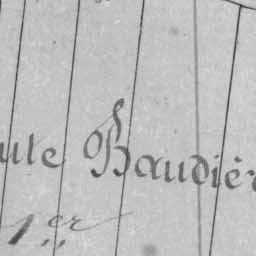 ule Baudièr
1er